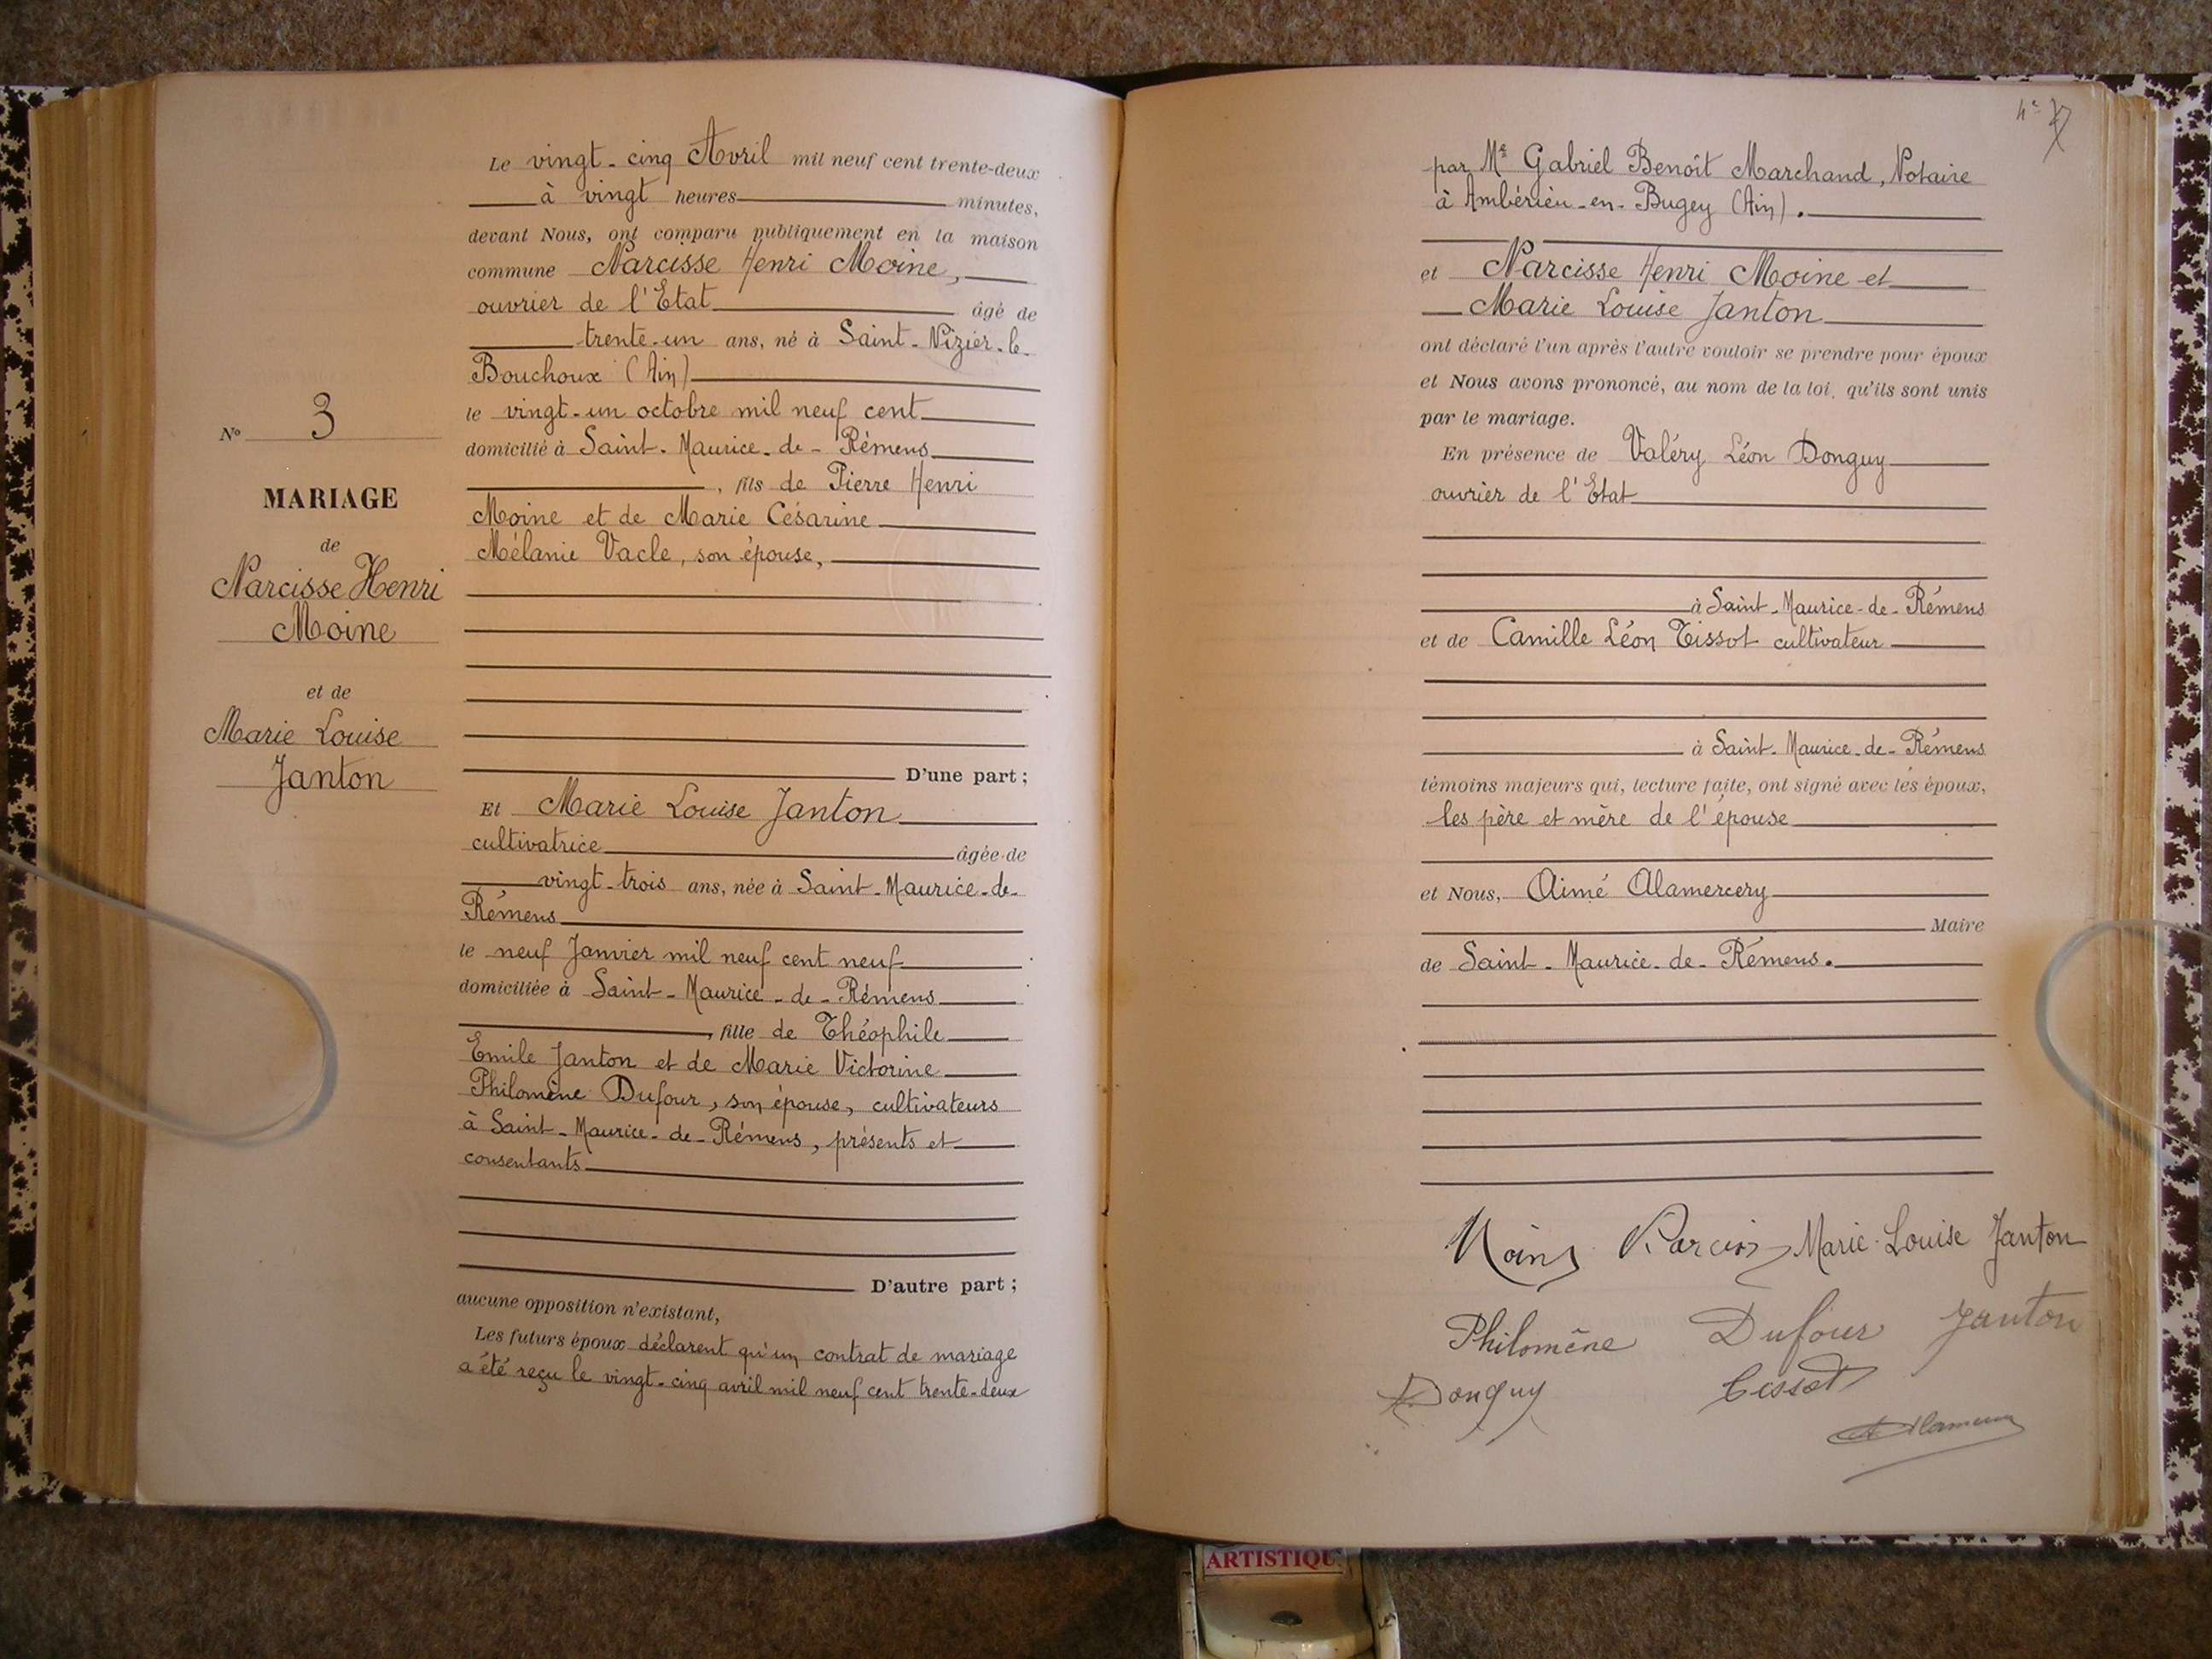 N° 3
MARIAGE
de
Narcisse Henri
Moine
et de
Marie Louise
Janton
Le vingt-cinq Avril mil neuf cent trente-deux
à vingt heures minutes,
devant Nous, ont comparu publiquement en la maison
commune Narcisse Henri Moine,
ouvrier de l'Etat âgé de
trente-un ans, né à Saint-Nizier-le-
Bouchoux (Ain)
le vingt-un octobre mil neuf cent
domicilié à Saint-Maurice-de-Rémens
, fils de Pierre Henri
Moine et de Marie Césarine
Mélanie Vacle, son épouse,
D'une part;
Et Marie Louise Janton
cultivatrice âgée de
vingt-trois ans, née à Saint-Maurice-de-
Rémens
le neuf Janvier mil neuf cent neuf
domiciliée à Saint-Maurice-de-Rémens
, fille de Théophile
Emile Janton et de Marie Victorine
Philomène Dufour, son épouse, cultivateurs
à Saint-Maurice-de-Rémens, présents et
consentants
D'autre part;
aucune opposition n'existant,
Les futurs époux déclarent qu'un contrat de mariage
a été reçu le vingt-cinq avril mil neuf cent trente-deux
par Me Gabriel Benoît Marchand, Notaire
à Ambérieu-en-Bugey (Ain).
et Narcisse Henri Moine et
Marie Louise Janton
ont déclaré l'un après l'autre vouloir se prendre pour époux
et Nous avons prononcé, au nom de la loi, qu'ils sont unis
par le mariage.
En présence de Valéry Léon Donguy
ouvrier de l'Etat
à Saint-Maurice-de-Rémens
et de Camille Léon Tissot cultivateur
à Saint-Maurice-de-Rémens
témoins majeurs qui, lecture faite, ont signé avec les époux,
les père et mère de l'épouse
et Nous, Aimé Alamercery
Maire
de Saint-Maurice-de-Rémens.
Moine Narcisse Marie-Louise Janton
Philomène Dufour Janton
Donguy Tissot
ARTISTIQU